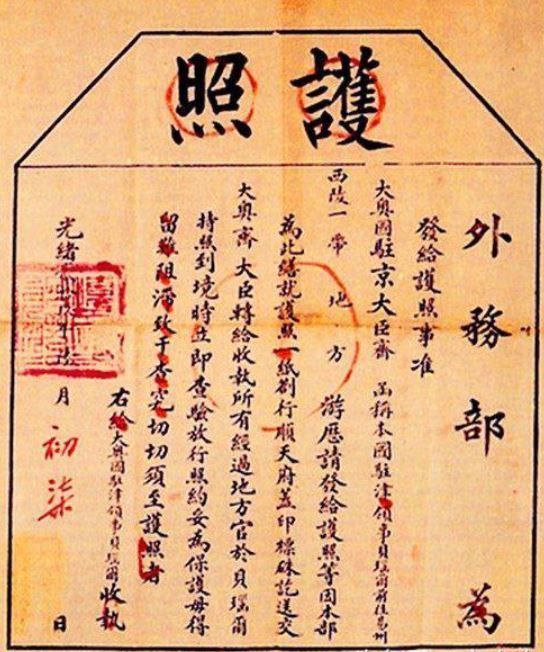 護照
外務部 為
發給護照事准
大奧國駐京大臣齊 函稱本國駐津領事貝瑙爾前往易州
西陵一帶地方 游歷請發給護照等因本部
為此繕就護照一紙劄行順天府蓋印標硃訖送交
大奧齊大臣轉給收執所有經過地方官於貝瑙爾
持照到境時立即查驗放行照約妥為保護毋得
留難阻滯致干查究切切須至護照者
右給大奧國駐津領事貝瑙爾收執
光緒 年 月 初柒 日